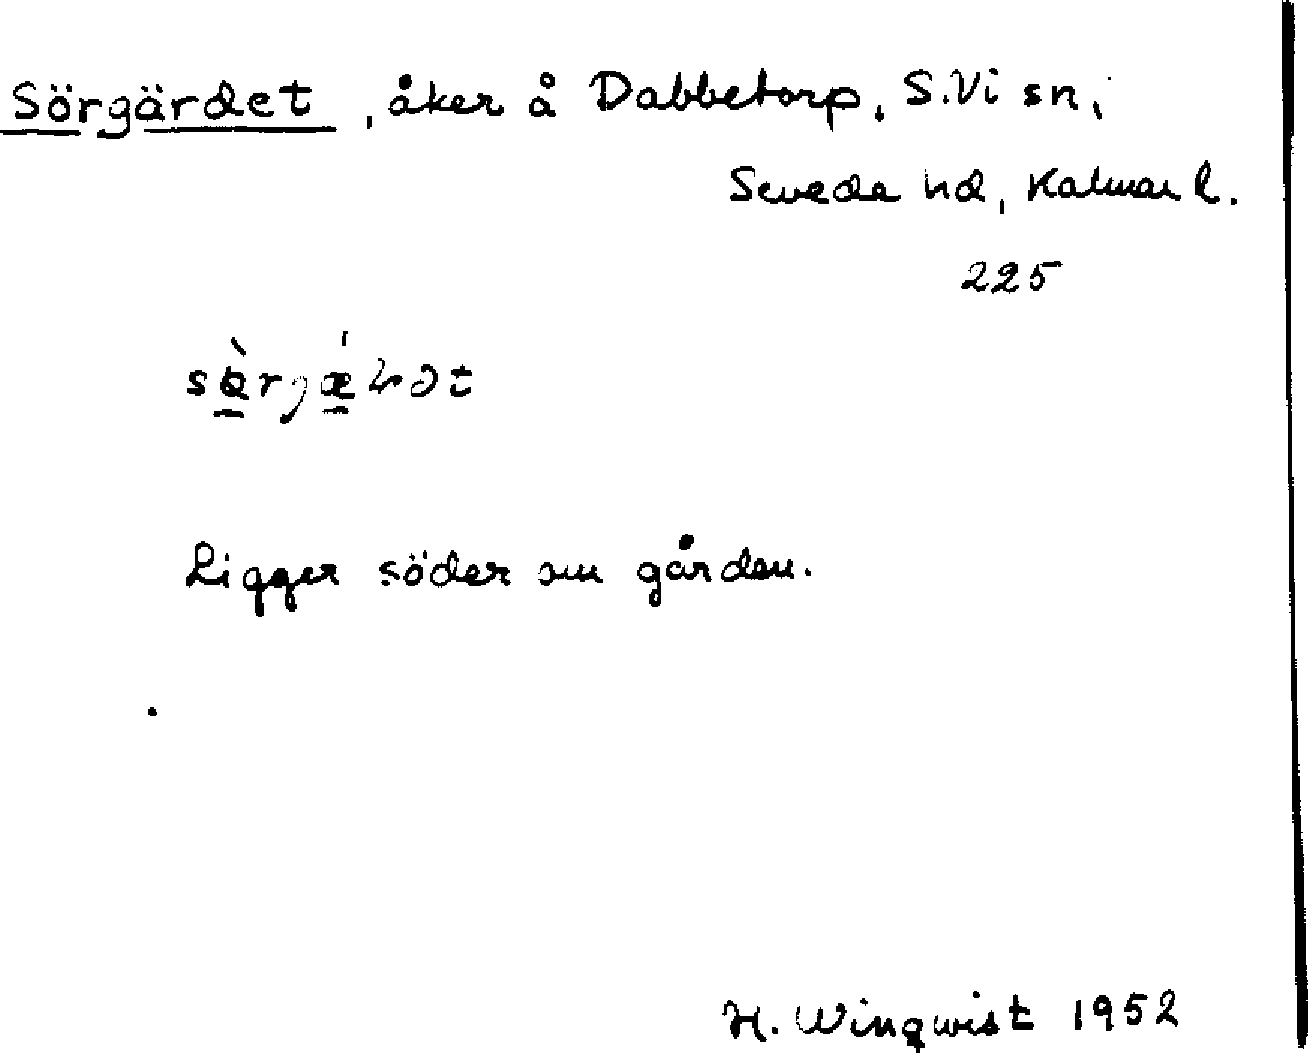 Sörgärdet, åker å Dabbetorp, S.Vi sn,
Sevede hd, Kalmar l.
225
Ligger söder om gården.
H. Winqwist 1952